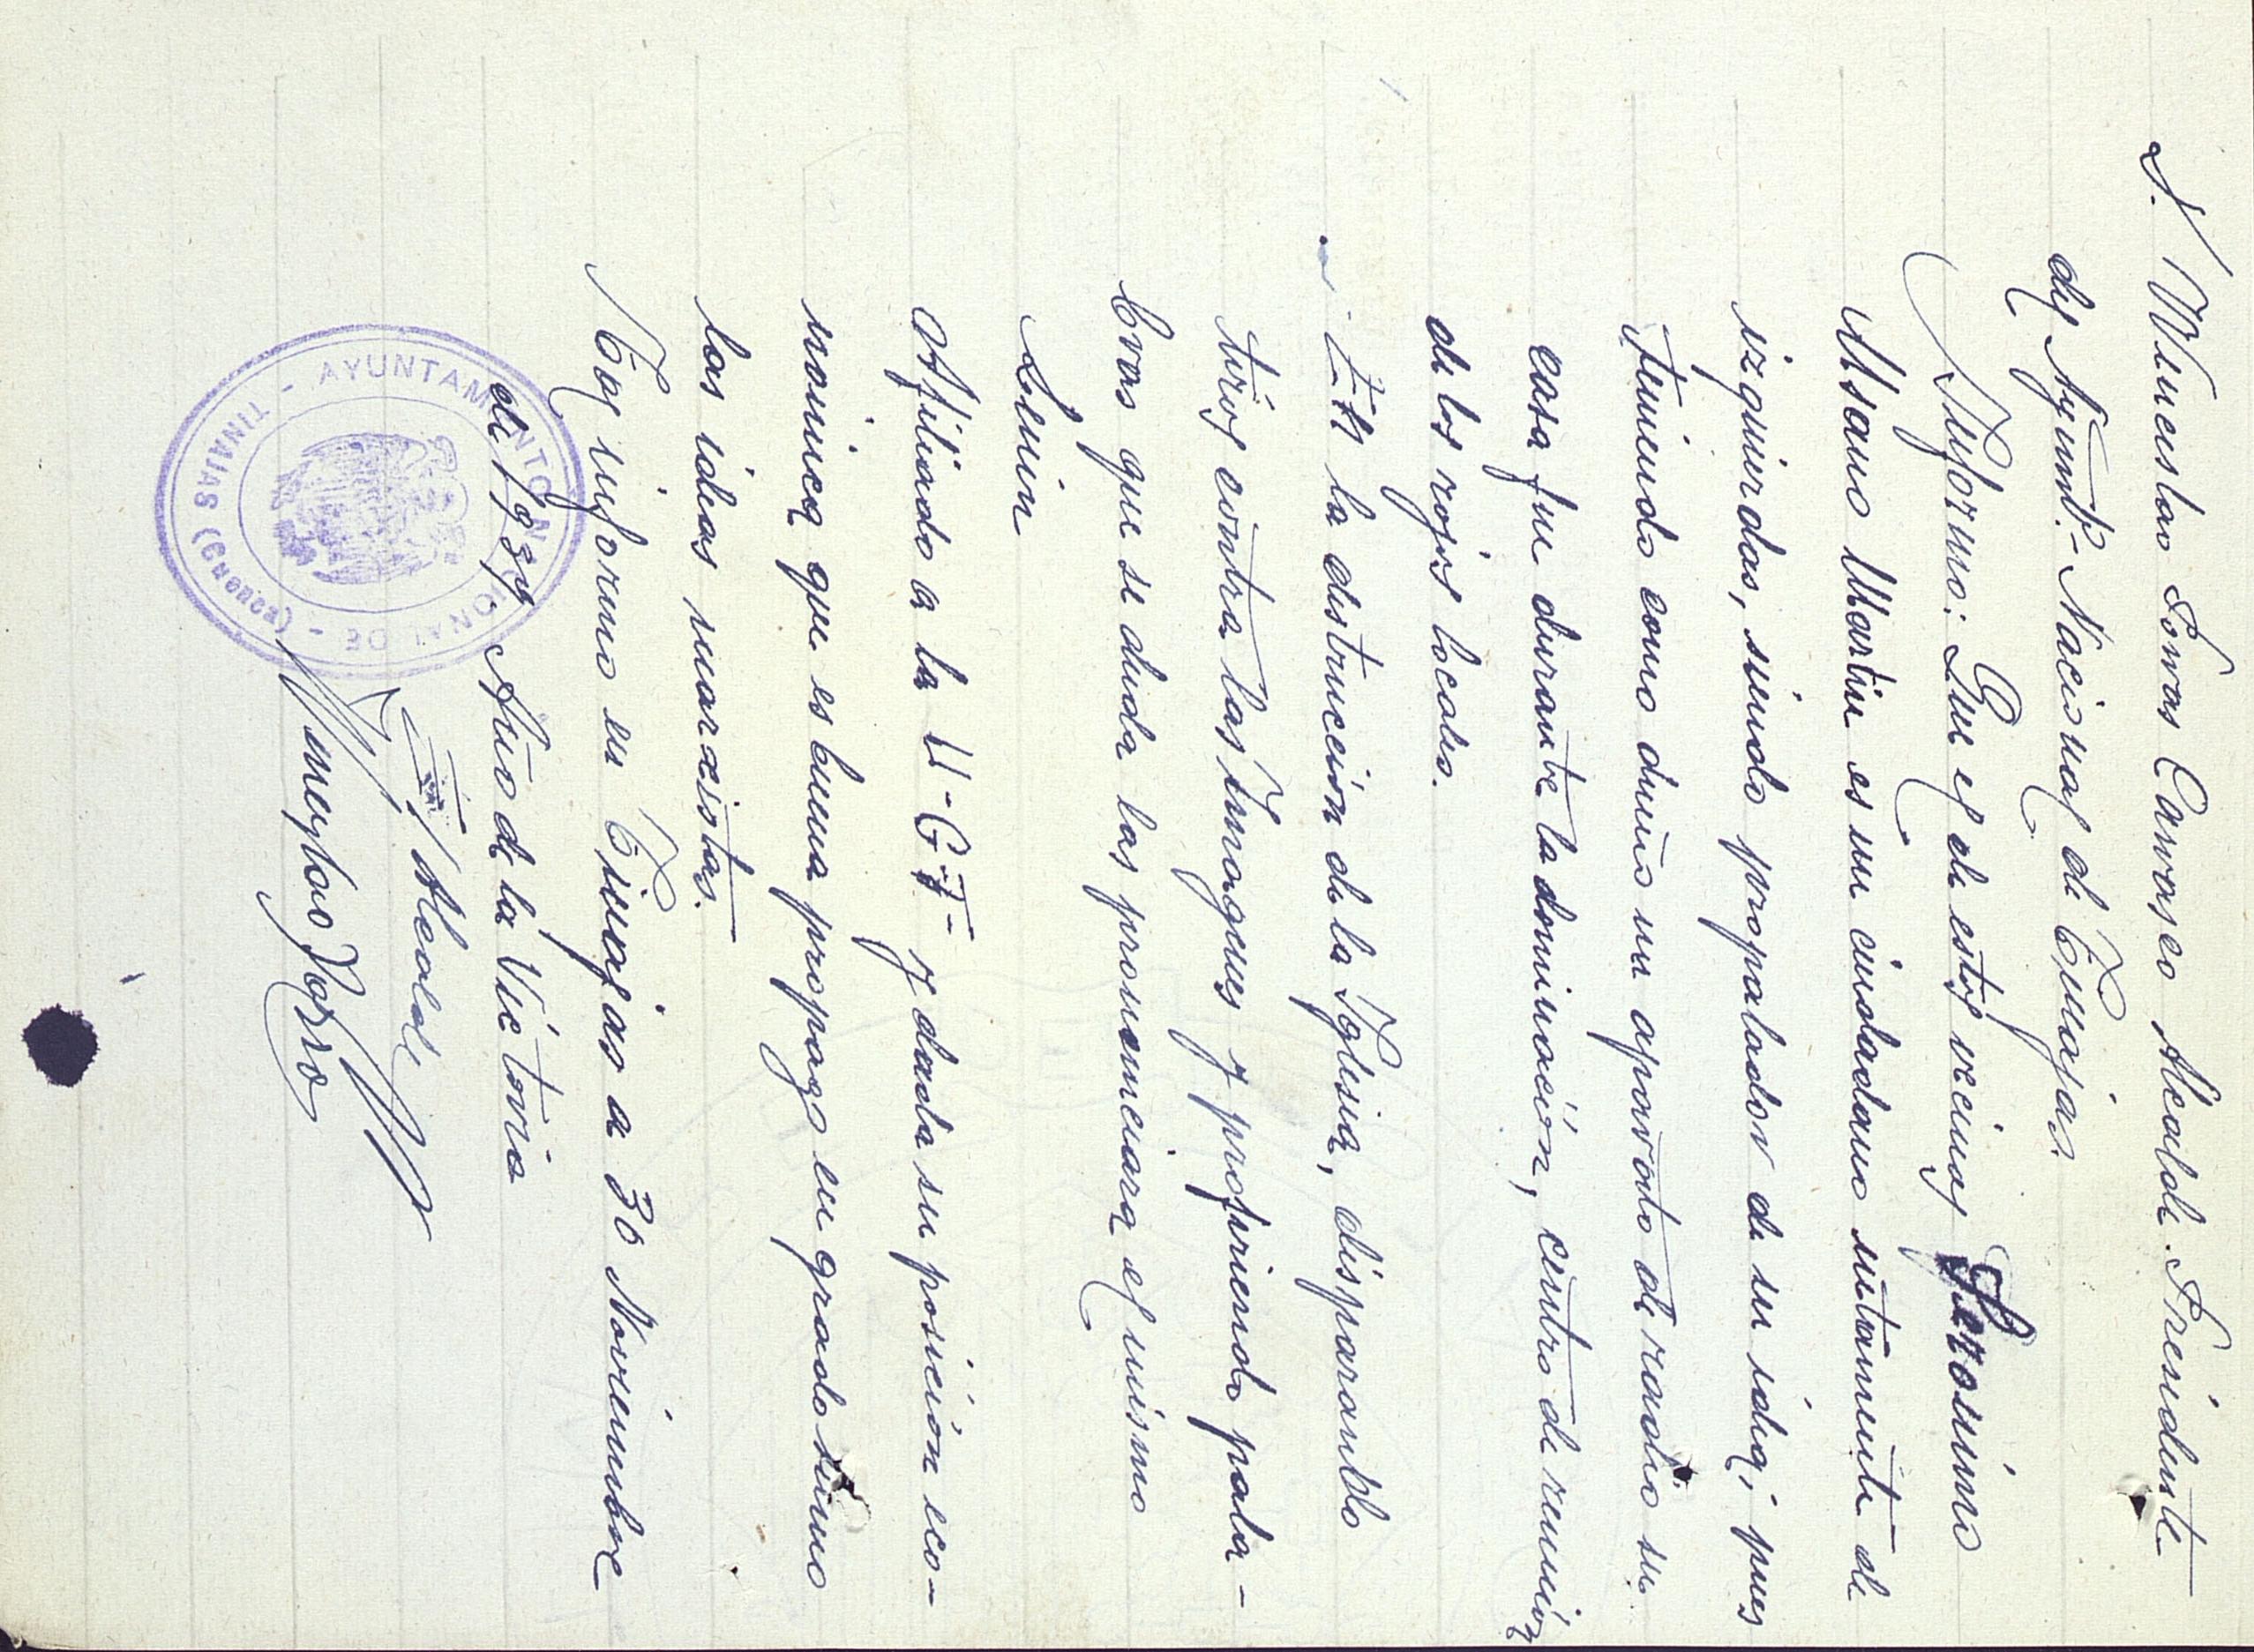 D. Wenceslao Somas Carrasco Alcalde. Presidente
del Ayunto.- Nacional de Tinajas.
Informo: Que el de esta vecindad Geronimo
Alsano Martin es un ciudadano netamente de
izquierdas, siendo propalador de su idea; pues
teniendo como dueño un aparato de radio su
casa fue durante la dominación, centro de reunión
de los rojos locales.
En la destrucción de la Iglesia, disparando
tiros contra las Imagenes y profiriendo pala-
bras que se duda las pronunciara el mismo
Lenin
Afiliado a la U-G-T- y dada su posición eco-
nómica que es buena propago en grado sumo
las ideas marxistas.
Tal informo en Tinajas a 30 Noviembre
de 1939. Año de la Victoria
El Alcalde
AYUNTAMIENTO NACIONAL DE - TINAJAS (Cuenca) -